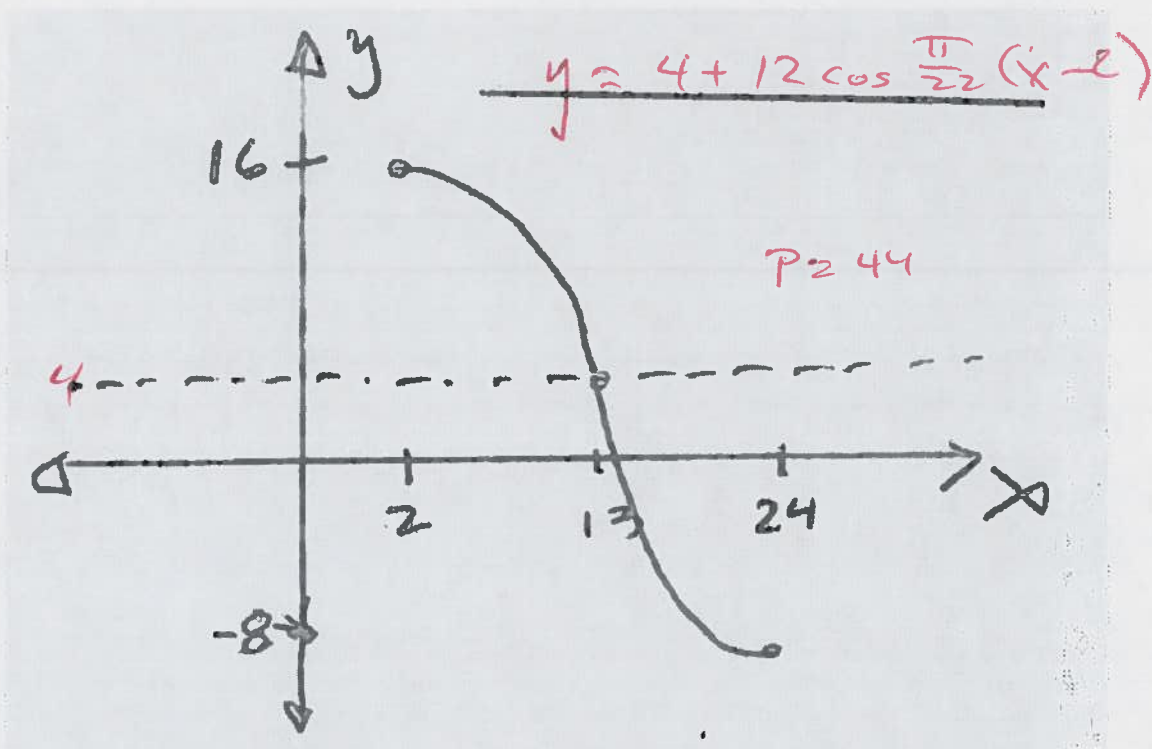 y
y = 4 + 12 cos π/22 (x - 2)
16
P = 44
4
2
13
24
x
-8